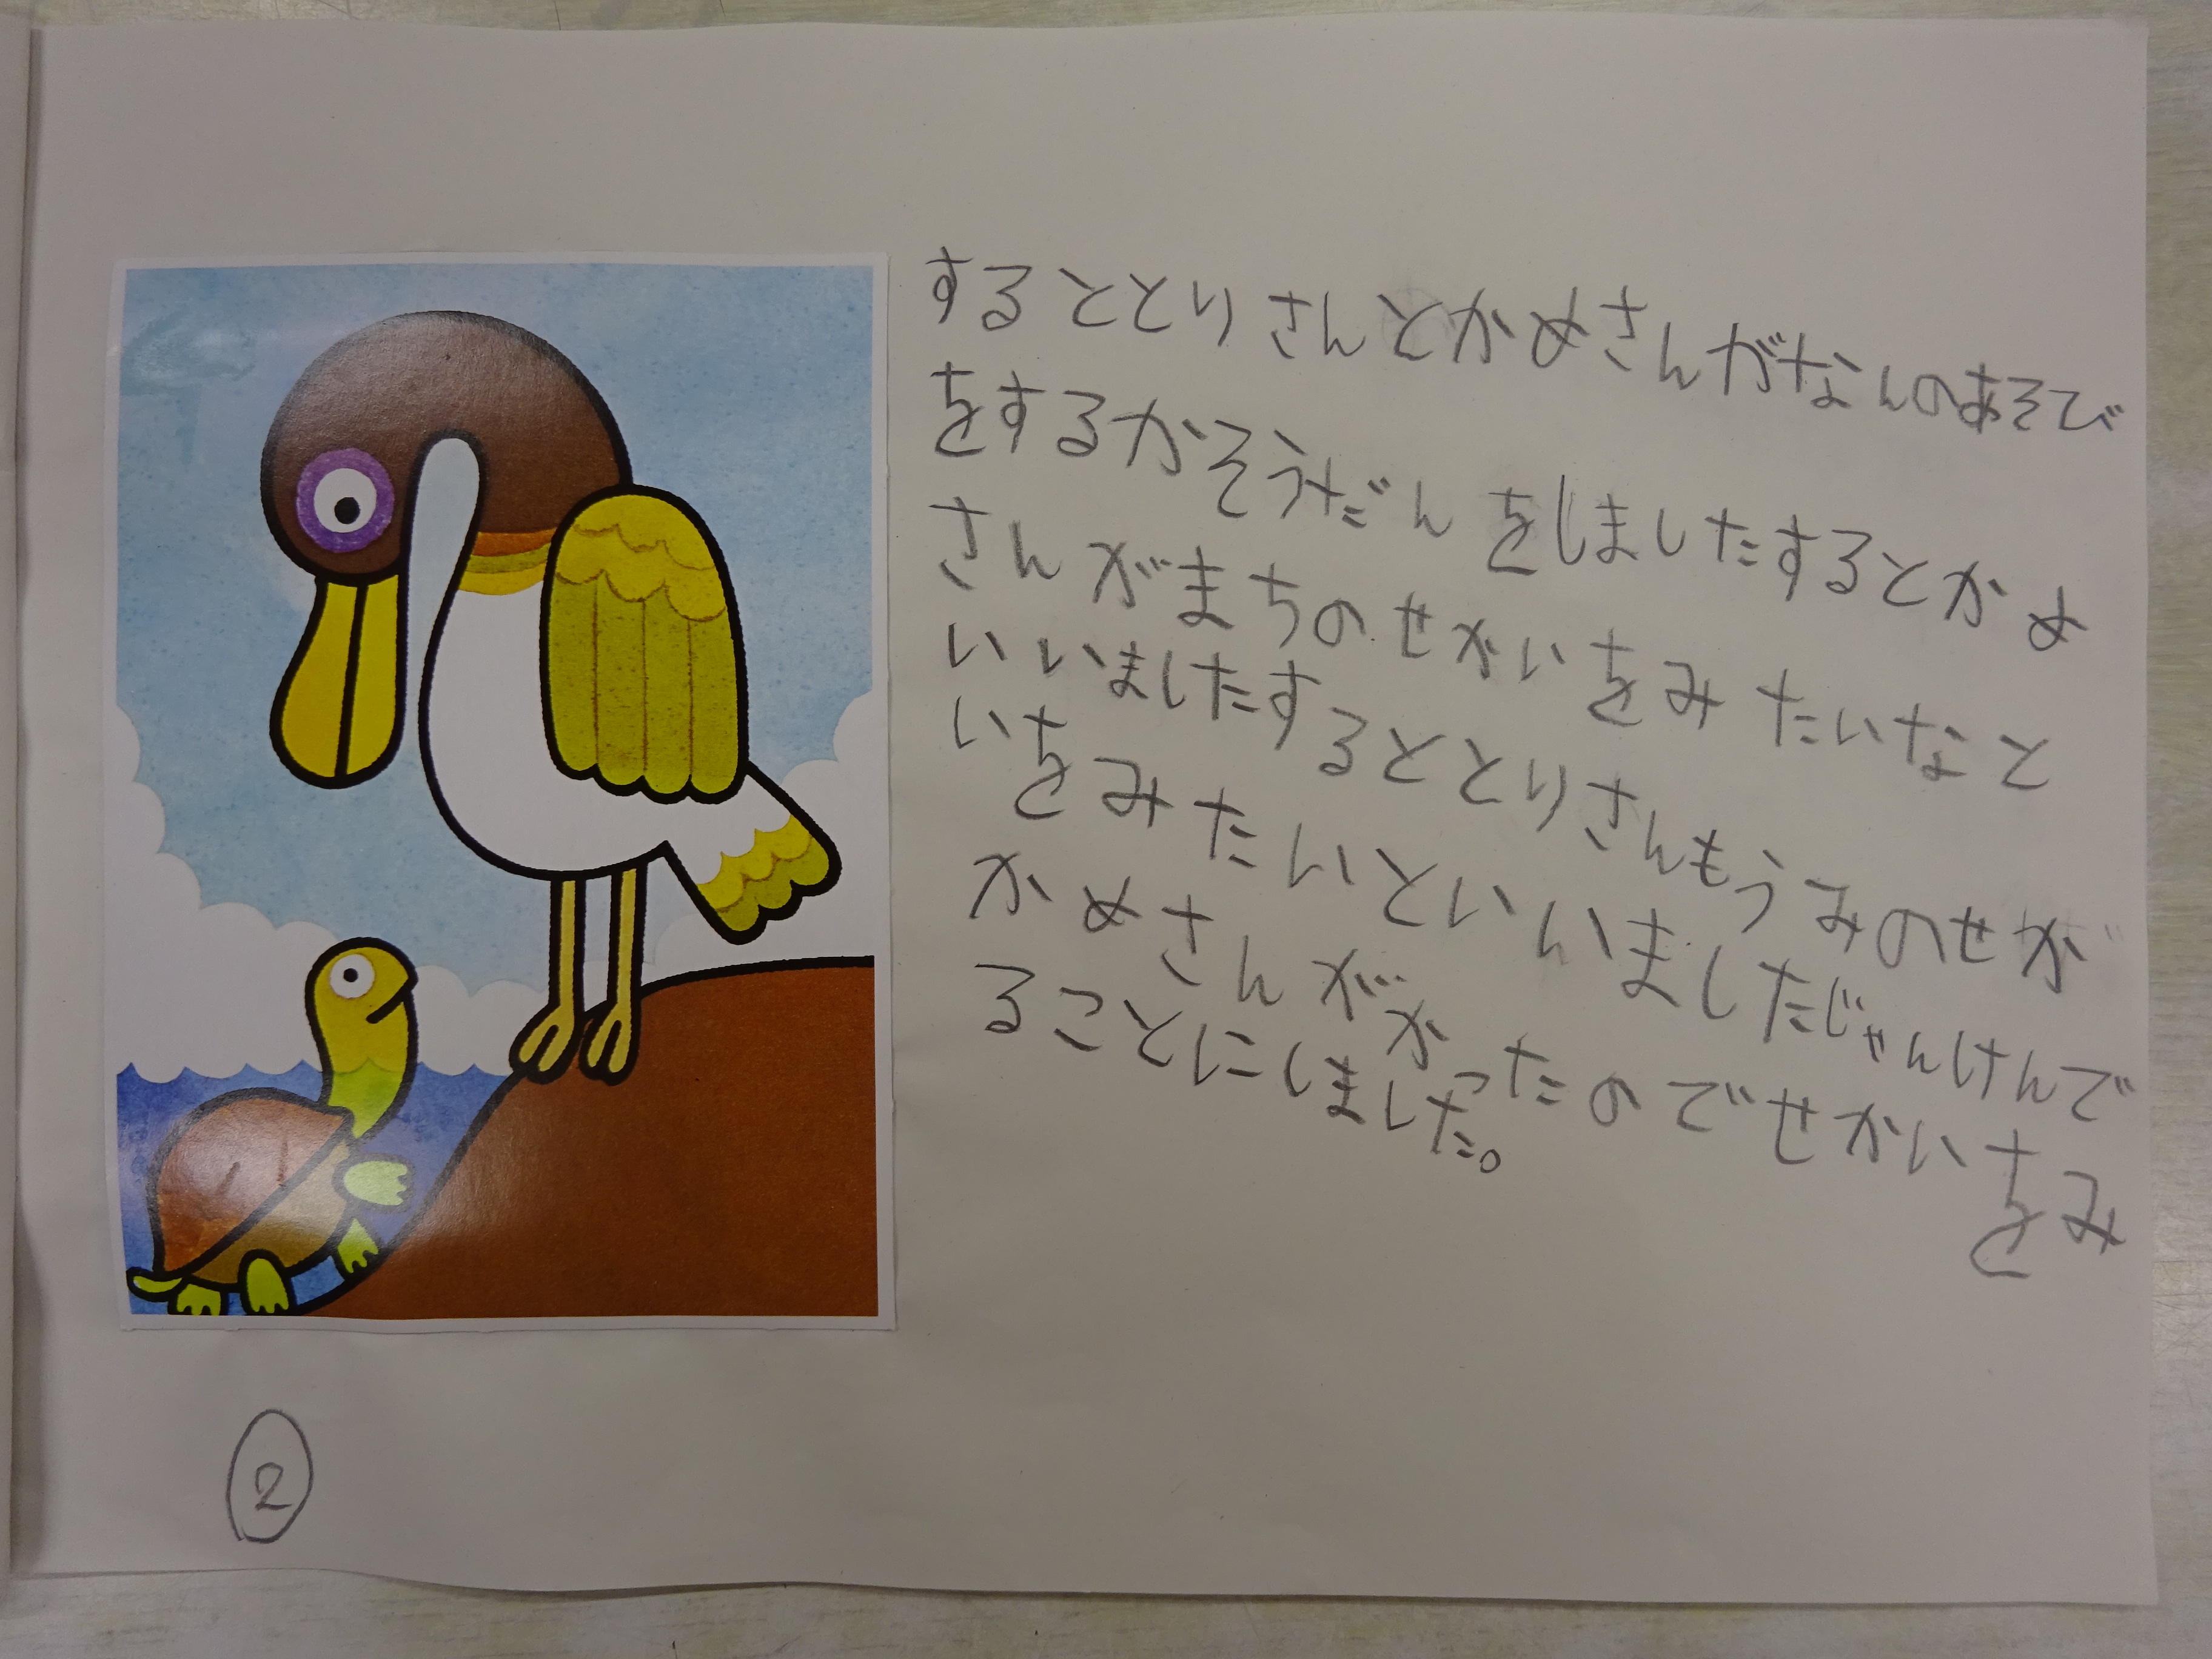 するととりさんとかめさんがなんのあそび
をするかそうだんをしましたするとかめ
さんがまちのせかいをみたいなと
いいましたするととりさんもうみのせか
いをみたいといいましたじゃんけんで
かめさんがかったのでせかいをみ
ることにしました。
2